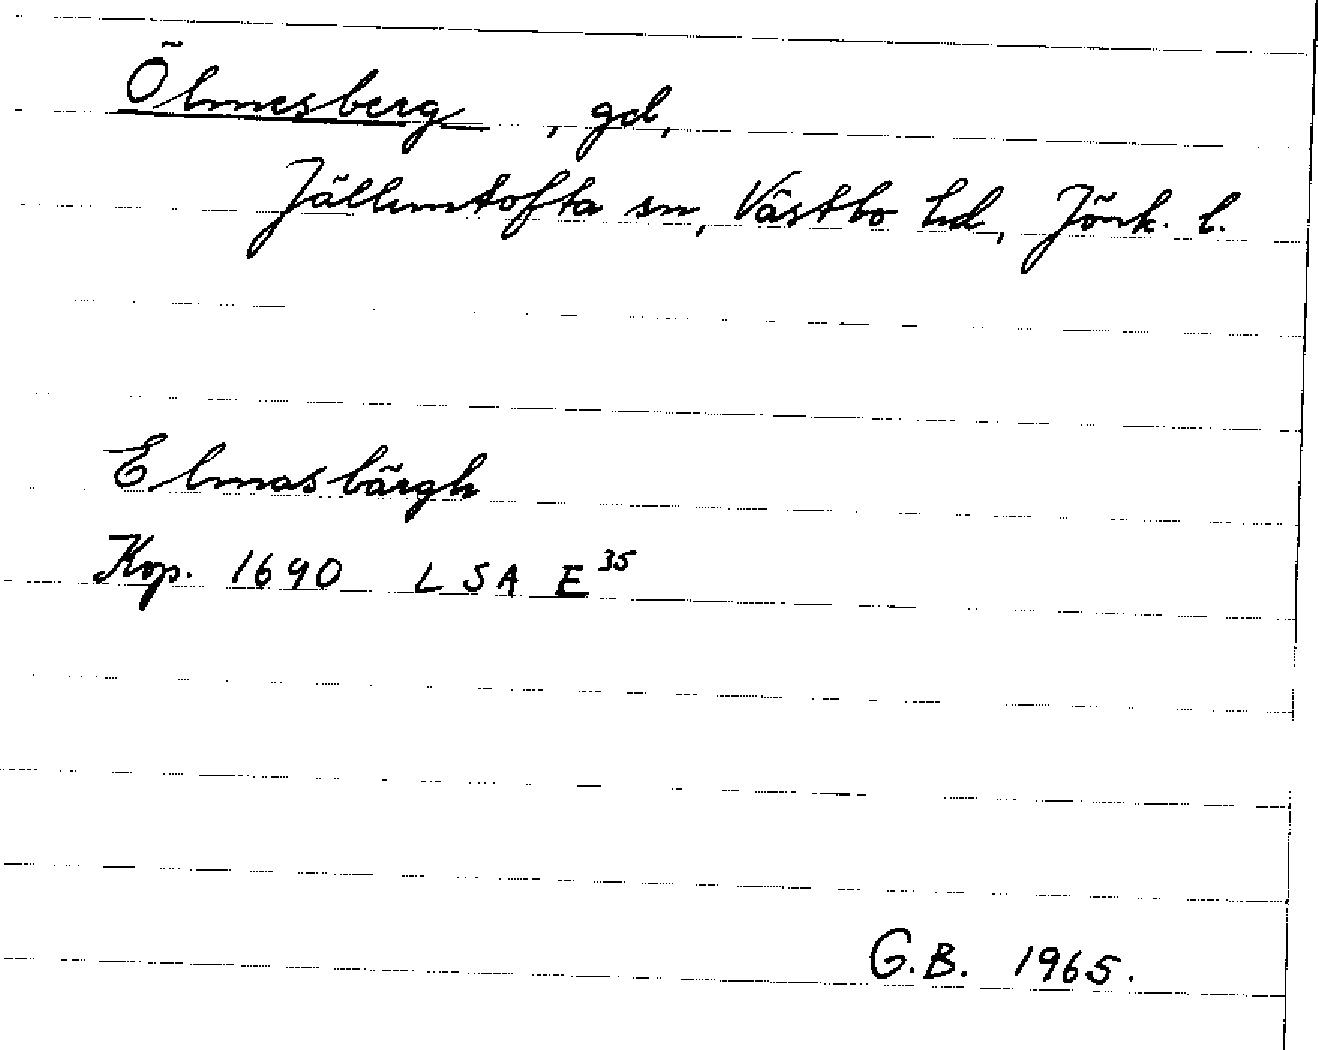 Ölmesberg, gd,
Jälluntofta sn, Västbo hd, Jönk. l.
Elmasbärgh
Kop. 1690 LSA E 35
G.B. 1965.